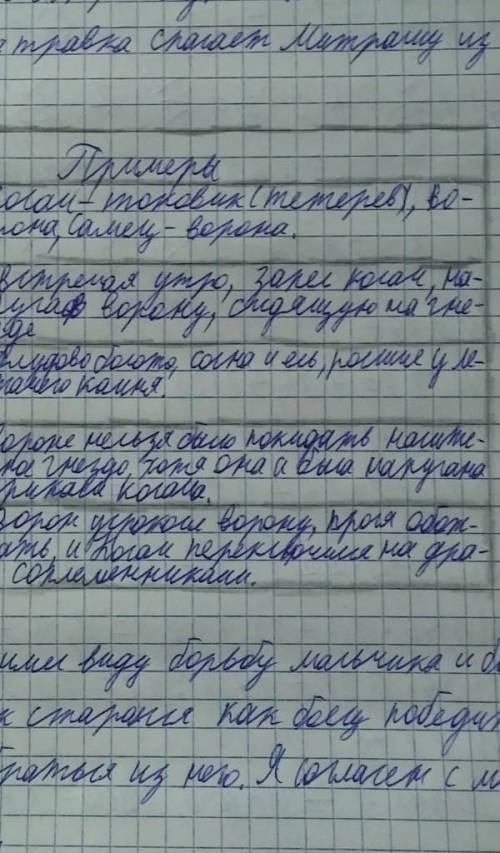 травка спасает Митрашу из
Примеры
Косач-токовик (тетерев), во-
рона, самец-ворона.
встречая утро, запел косач, на-
пугав ворону, сидящую на гне-
зде
Блудово болото, сосна и ель, росшие у ле-
жачего камня.
вороне нельзя было покидать насиже-
ное гнездо, хотя она и была напугана
криками косача.
ворон успокоил ворону, прося обож-
дать, и косач переключился на дра-
соплеменниками.
имел виду борьбу мальчика и б
к старался как боец победит
браться из него. Я согласен с м